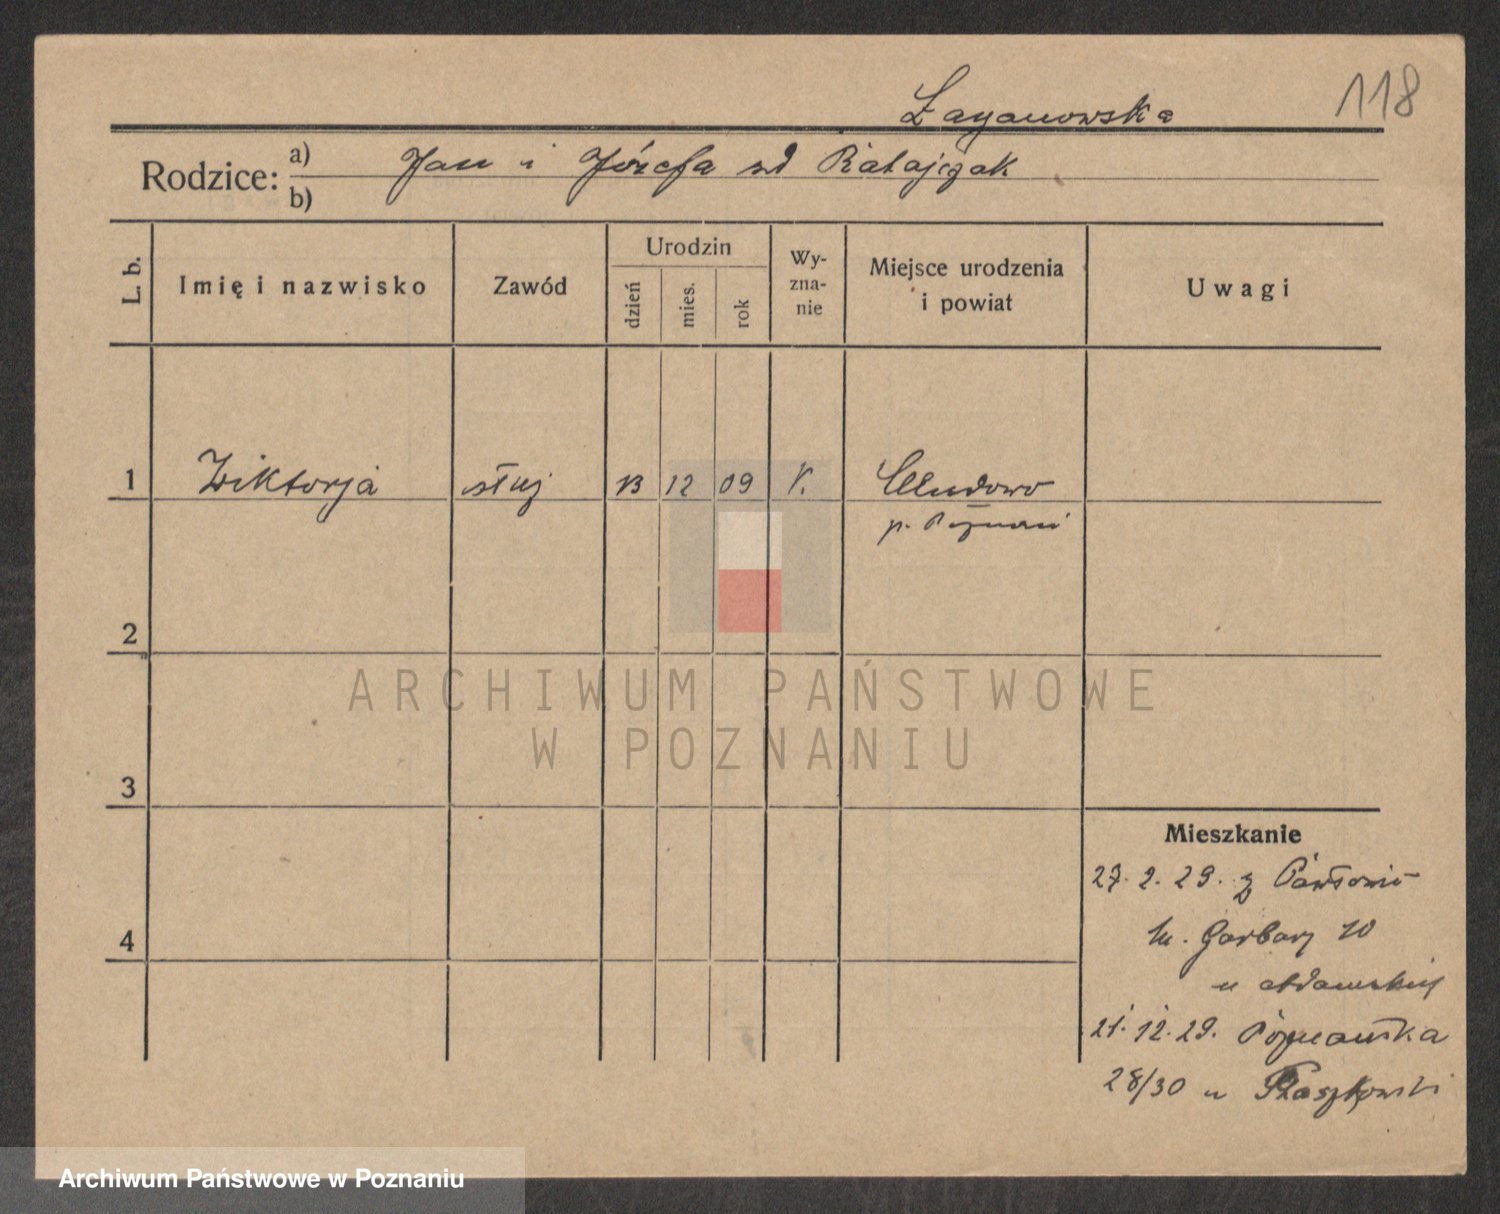 118
Rodzice:
a) Jan i Józefa zd Ratajczak
b)
L. b.
Imię i nazwisko
Zawód
Urodzin
dzień
mies.
rok
Wy-
zna-
nie
Miejsce urodzenia
i powiat
Uwagi
1 Wiktorja służ 13 12 09 k. Chludowo
p. Poznań
2
ARCHIWUM PAŃSTWOWE
W POZNANIU
3
Mieszkanie
27. 2. 29. z
4
m. Garbary 10
u Adamskiej
21. 12. 29. Poznańska
28/30 u Płaszkowski
Archiwum Państwowe w Poznaniu